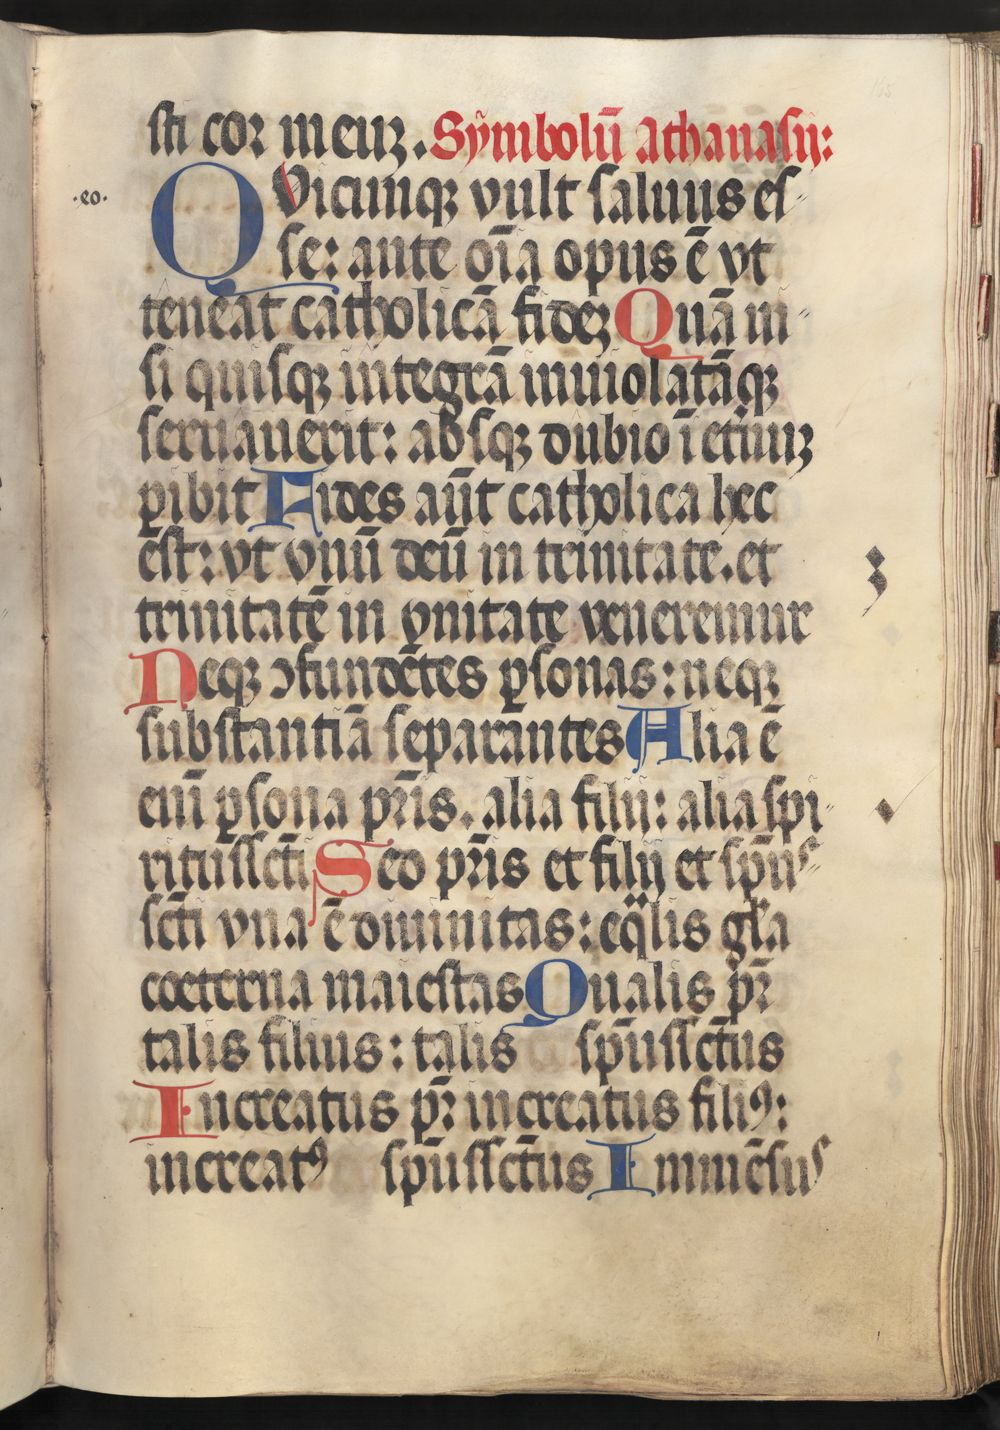 sti cor meuȝ. Sỹmbolū athanasij:
·eo·
QVicunqȝ vult saluus es-
se: ante oīa opus ē vt
teneat catholicā fideȝ Quā ni-
si quisqȝ integrā inuiolatāqȝ
seruauerit: absqȝ dubio ī eternuȝ
ꝑibit Fides aūt catholica hec
est: vt vnū deū in trinitate. et
trinitatē in vnitate veneremur
Neqȝ ↄfundētes ꝑsonas: neqȝ
substantiā separantes Alia ē
enī ꝑsona pr̄is. alia filij: alia spi-
ritussc̄ti Seo pr̄is et filij et sp̄us
sc̄ti vna ē diuinitas: eq̈lis gl̄a
coeterna maiestas Qualis pr̄
talis filius: talis sp̄ussc̄tus
Increatus pr̄ increatus filiꝰ:
increatꝰ sp̄ussc̄tus Immēsus